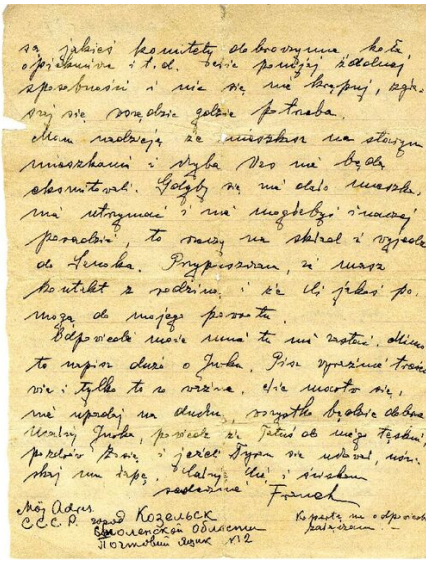 są jakieś komitety dobroczynne, koła
opiekuńcze i t.d. Nie pomijaj żadnej
sposobności i nic się nie krępuj, zgła-
szaj się wszędzie gdzie potrzeba.
Mam nadzieję że mieszkasz na starym
mieszkaniu i chyba Was nie będą
eksmitowali. Gdyby się nie dało mieszka-
nia utrzymać i nie mogłabyś inaczej
poradzić, to rzeczy na skład i wyjedź
do . Przypuszczam, że masz
kontakt z rodziną i że Ci jakoś po-
mogą do mojego powrotu.
Odpowiedź może mnie tu nie zastać. Mimo
to napisz dużo o Jurku. Pisz wyraźnie
i tylko to co ważne. Nie martw się,
nie upadaj na duchu, wszystko będzie dobrze
Jurka, powiedz że Tatuś do niego tęskni,
pozdrów i jeżeli się udał, uści-
skaj mu łapę. Całuję Cię i ściskam
serdecznie
Mój Adres
С.С.С.Р. город Козельск
Смоленской Области
Почтовый Ящик №2
Kopertę na odpowiedź
załączam.